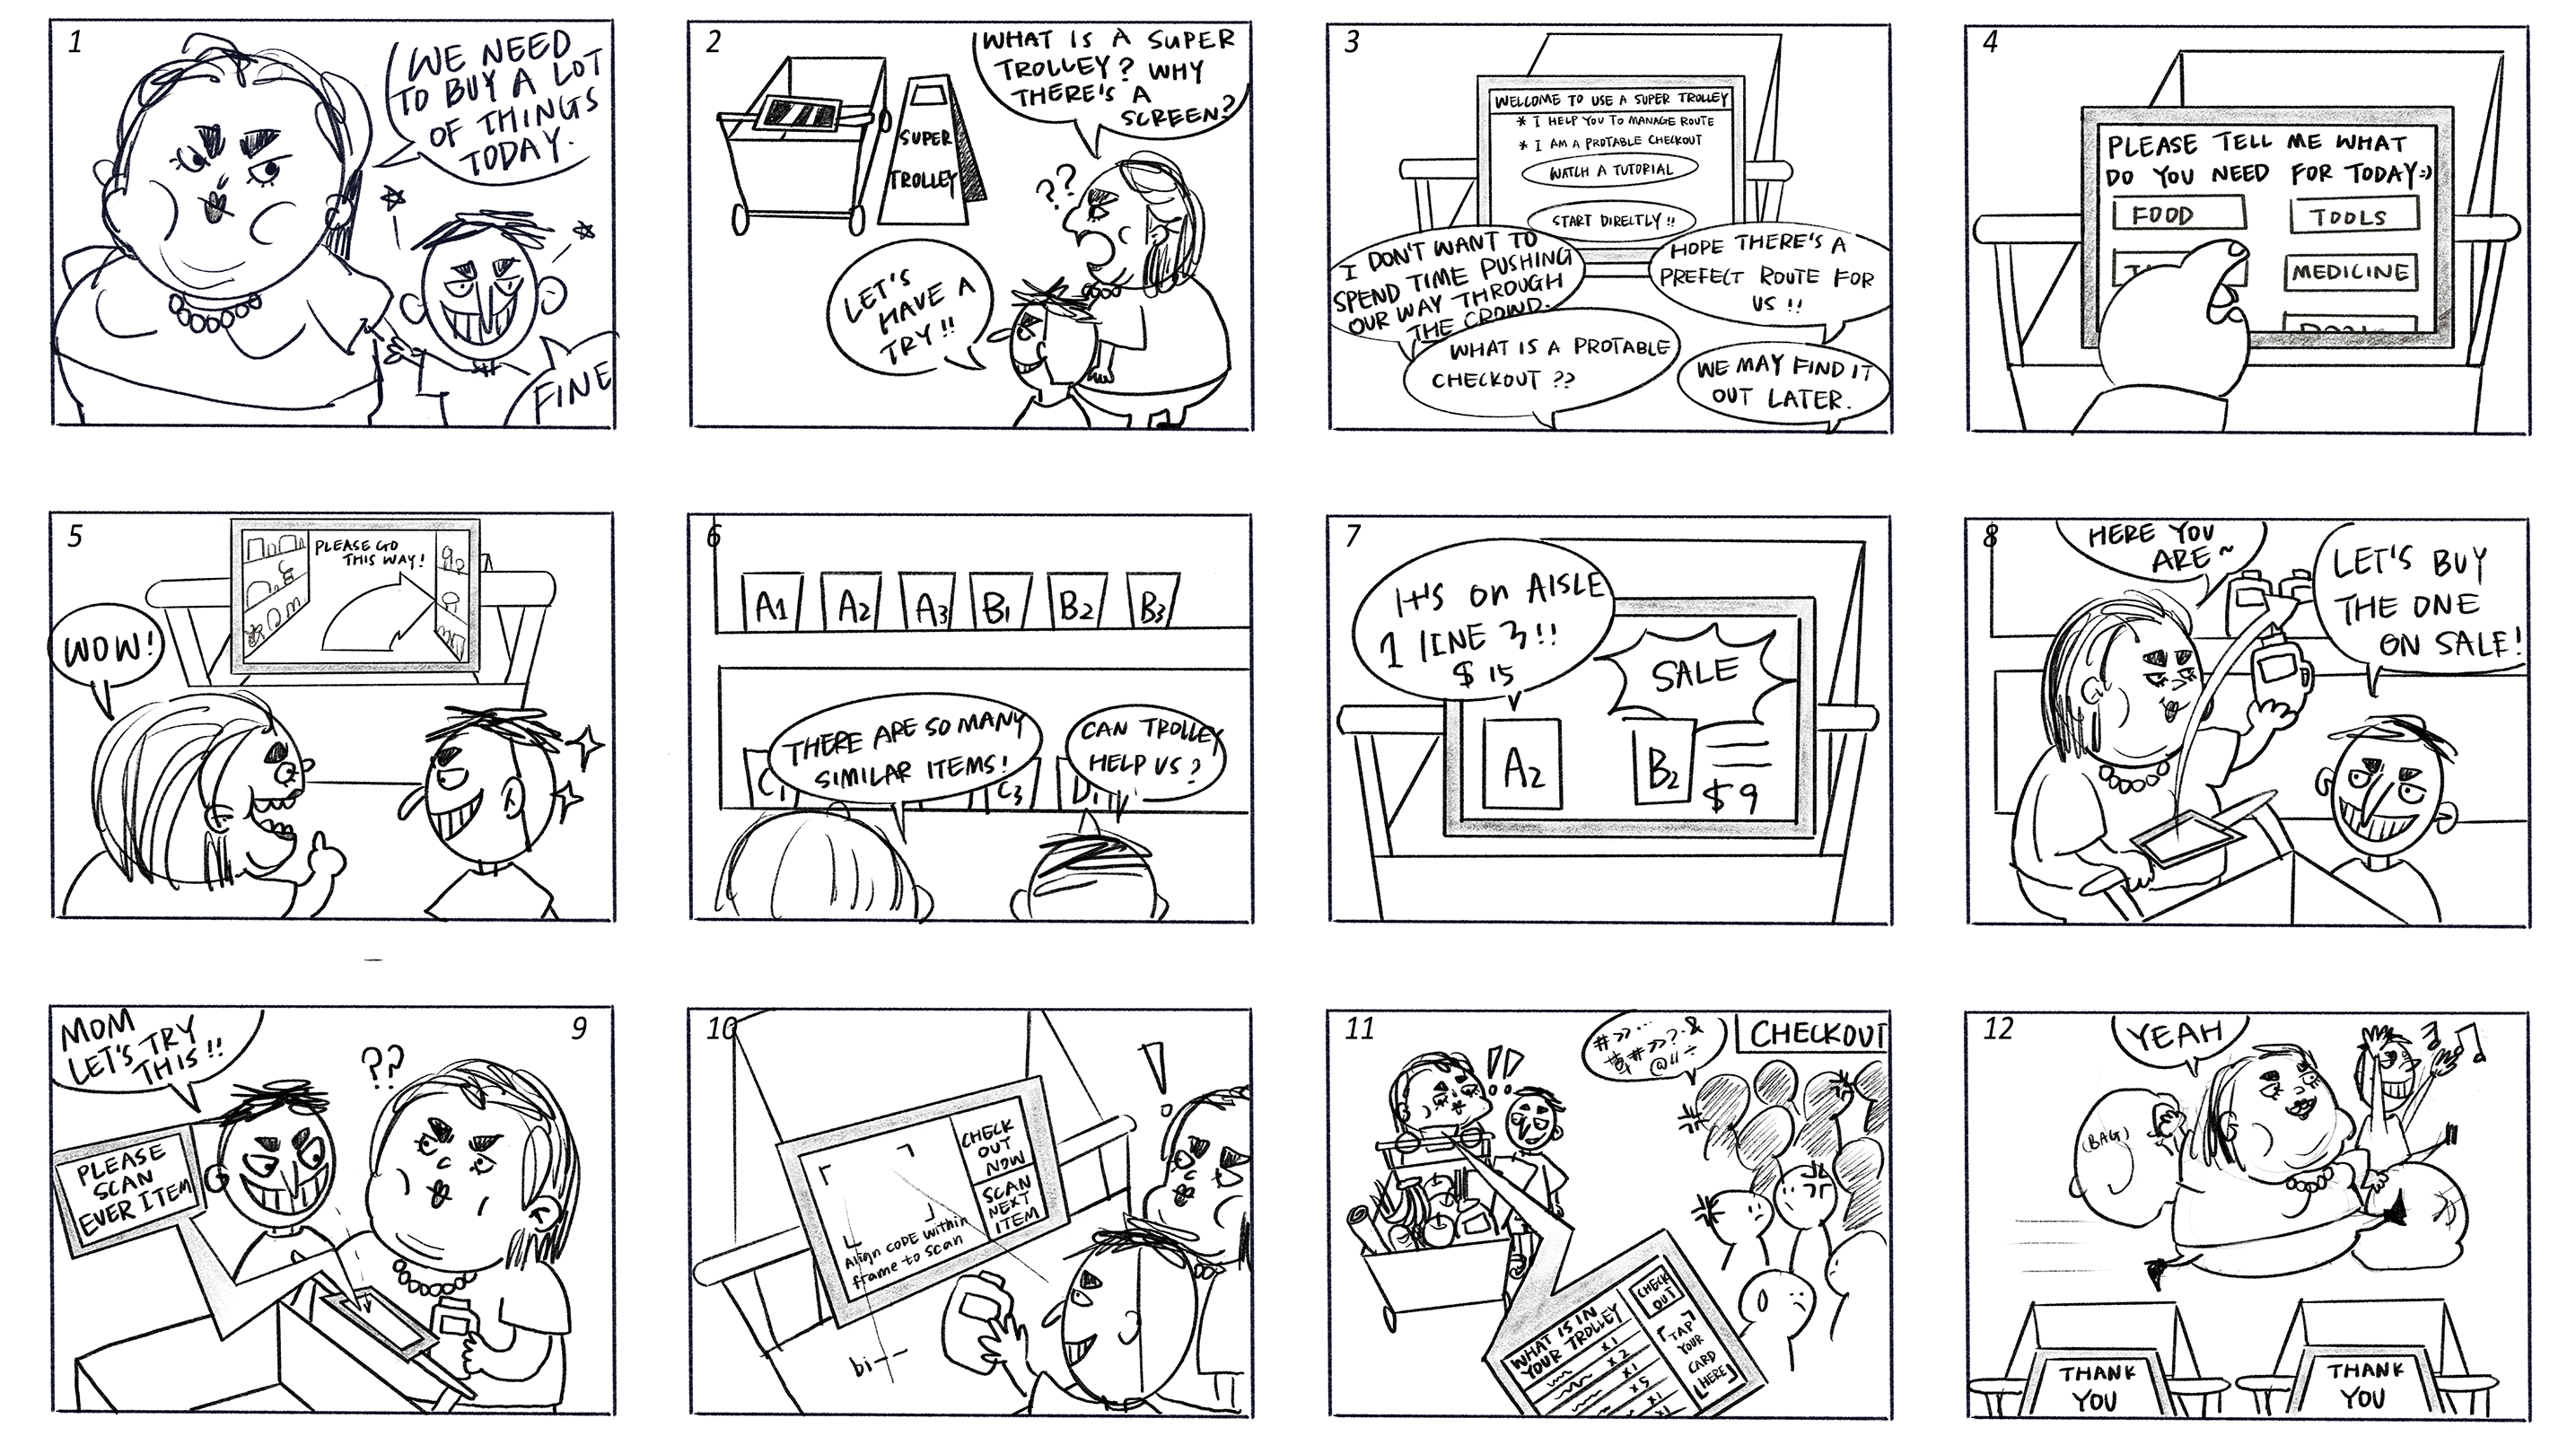 1
WE NEED
TO BUY A LOT
OF THINGS
TODAY.
FINE
2
WHAT IS A SUPER
TROLLEY? WHY
THERE'S A
SCREEN?
SUPER
TROLLEY
??
LET'S
HAVE A
TRY!!
3
WELLOME TO USE A SUPER TROLLEY
* I HELP YOU TO MANAGE ROUTE
* I AM A PROTABLE CHECKOUT
WATCH A TUTORIAL
START DIRECTLY!!
I DON'T WANT TO
SPEND TIME PUSHING
OUR WAY THROUGH
THE CROWD.
HOPE THERE'S A
PREFECT ROUTE FOR
US!!
WHAT IS A PROTABLE
CHECKOUT ??
WE MAY FIND IT
OUT LATER.
4
PLEASE TELL ME WHAT
DO YOU NEED FOR TODAY:)
FOOD
TOOLS
MEDICINE
5
PLEASE GO
THIS WAY!
WOW!
6
A1 A2 A3 B1 B2 B3
THERE ARE SO MANY
SIMILAR ITEMS!
CAN TROLLEY
HELP US?
C1 C3 D1
7
It's on AISLE
1 lINE 3!!
$ 15
SALE
A2
B2
$9
8
HERE YOU
ARE~
LET'S BUY
THE ONE
ON SALE!
9
MOM
LET'S TRY
THIS!!
??
PLEASE
SCAN
EVER ITEM
10
CHECK
OUT
NOW
SCAN
NEXT
ITEM
Align CODE within
frame to scan
bi--
!
11
!!
#>>...&
$#>>?-&
@//÷
CHECKOUT
WHAT IS IN
YOUR TROLLEY
x1
x2
x1
x5
x1
x1
CHECK
OUT
「TAP
YOUR
CARD
HERE」
12
YEAH
(BAG)
THANK
YOU
THANK
YOU